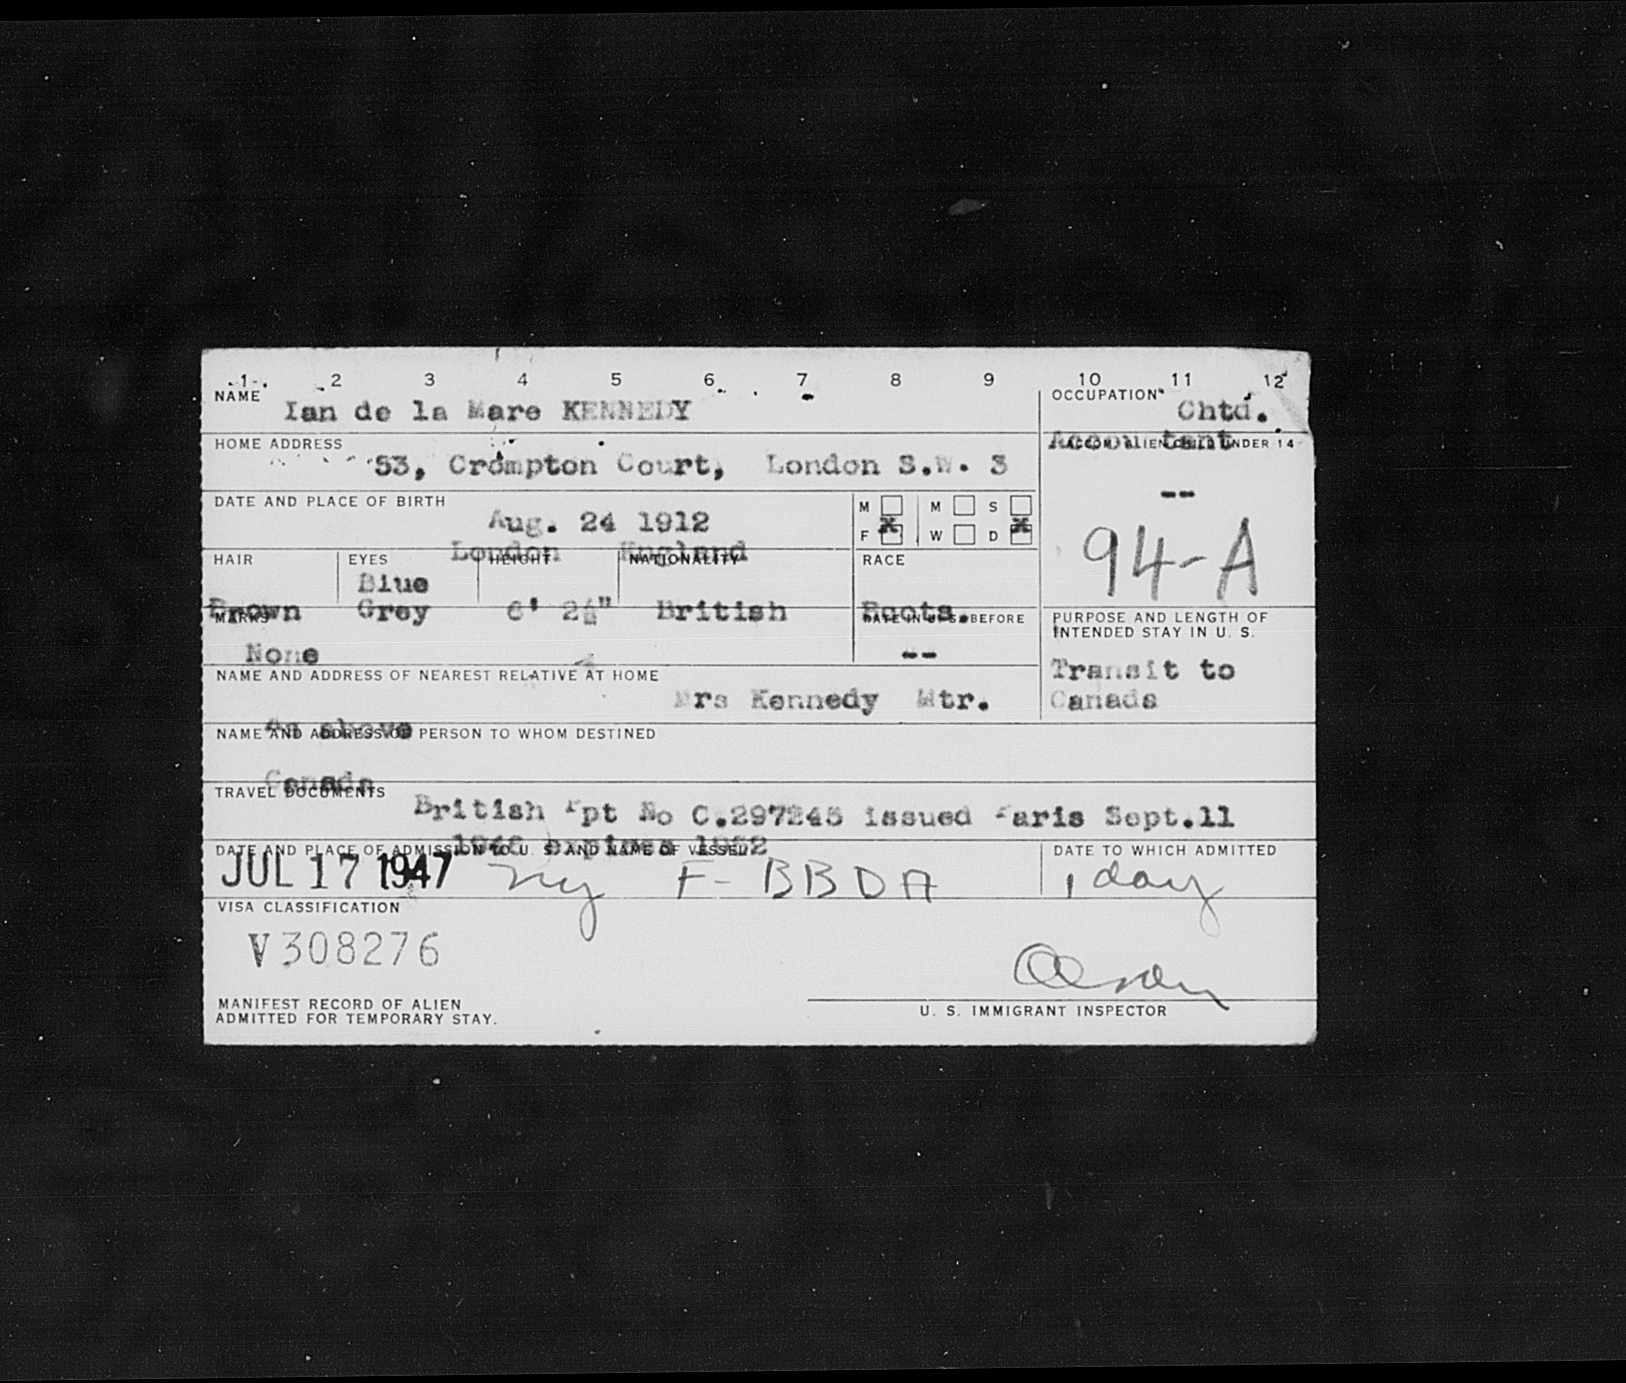 1 2 3 4 5 6 7 8 9 10 11 12
NAME Ian de la Mare KENNEDY
OCCUPATION Chtd.
Accountant
ACCOM. ALIEN CHILD UNDER 14
--
HOME ADDRESS
53, Crompton Court, London S.W. 3
DATE AND PLACE OF BIRTH
Aug. 24 1912
London England
M F X M S W D X
94-A
HAIR EYES HEIGHT NATIONALITY RACE
Blue
Brown Grey 6' 2½" British Scots.
MARKS DATE IN U. S. BEFORE
None --
PURPOSE AND LENGTH OF
INTENDED STAY IN U. S.
Transit to
Canada
NAME AND ADDRESS OF NEAREST RELATIVE AT HOME
Mrs Kennedy Mtr.
As above
NAME AND ADDRESS OF PERSON TO WHOM DESTINED
Canada
TRAVEL DOCUMENTS
British Ppt No C.297245 issued Paris Sept.11
1946 expires 1952
DATE AND PLACE OF ADMISSION TO U. S. AND NAME OF VESSEL
JUL 17 1947 ny F-BBDA
DATE TO WHICH ADMITTED
1 day
VISA CLASSIFICATION
V308276
MANIFEST RECORD OF ALIEN
ADMITTED FOR TEMPORARY STAY.
U. S. IMMIGRANT INSPECTOR